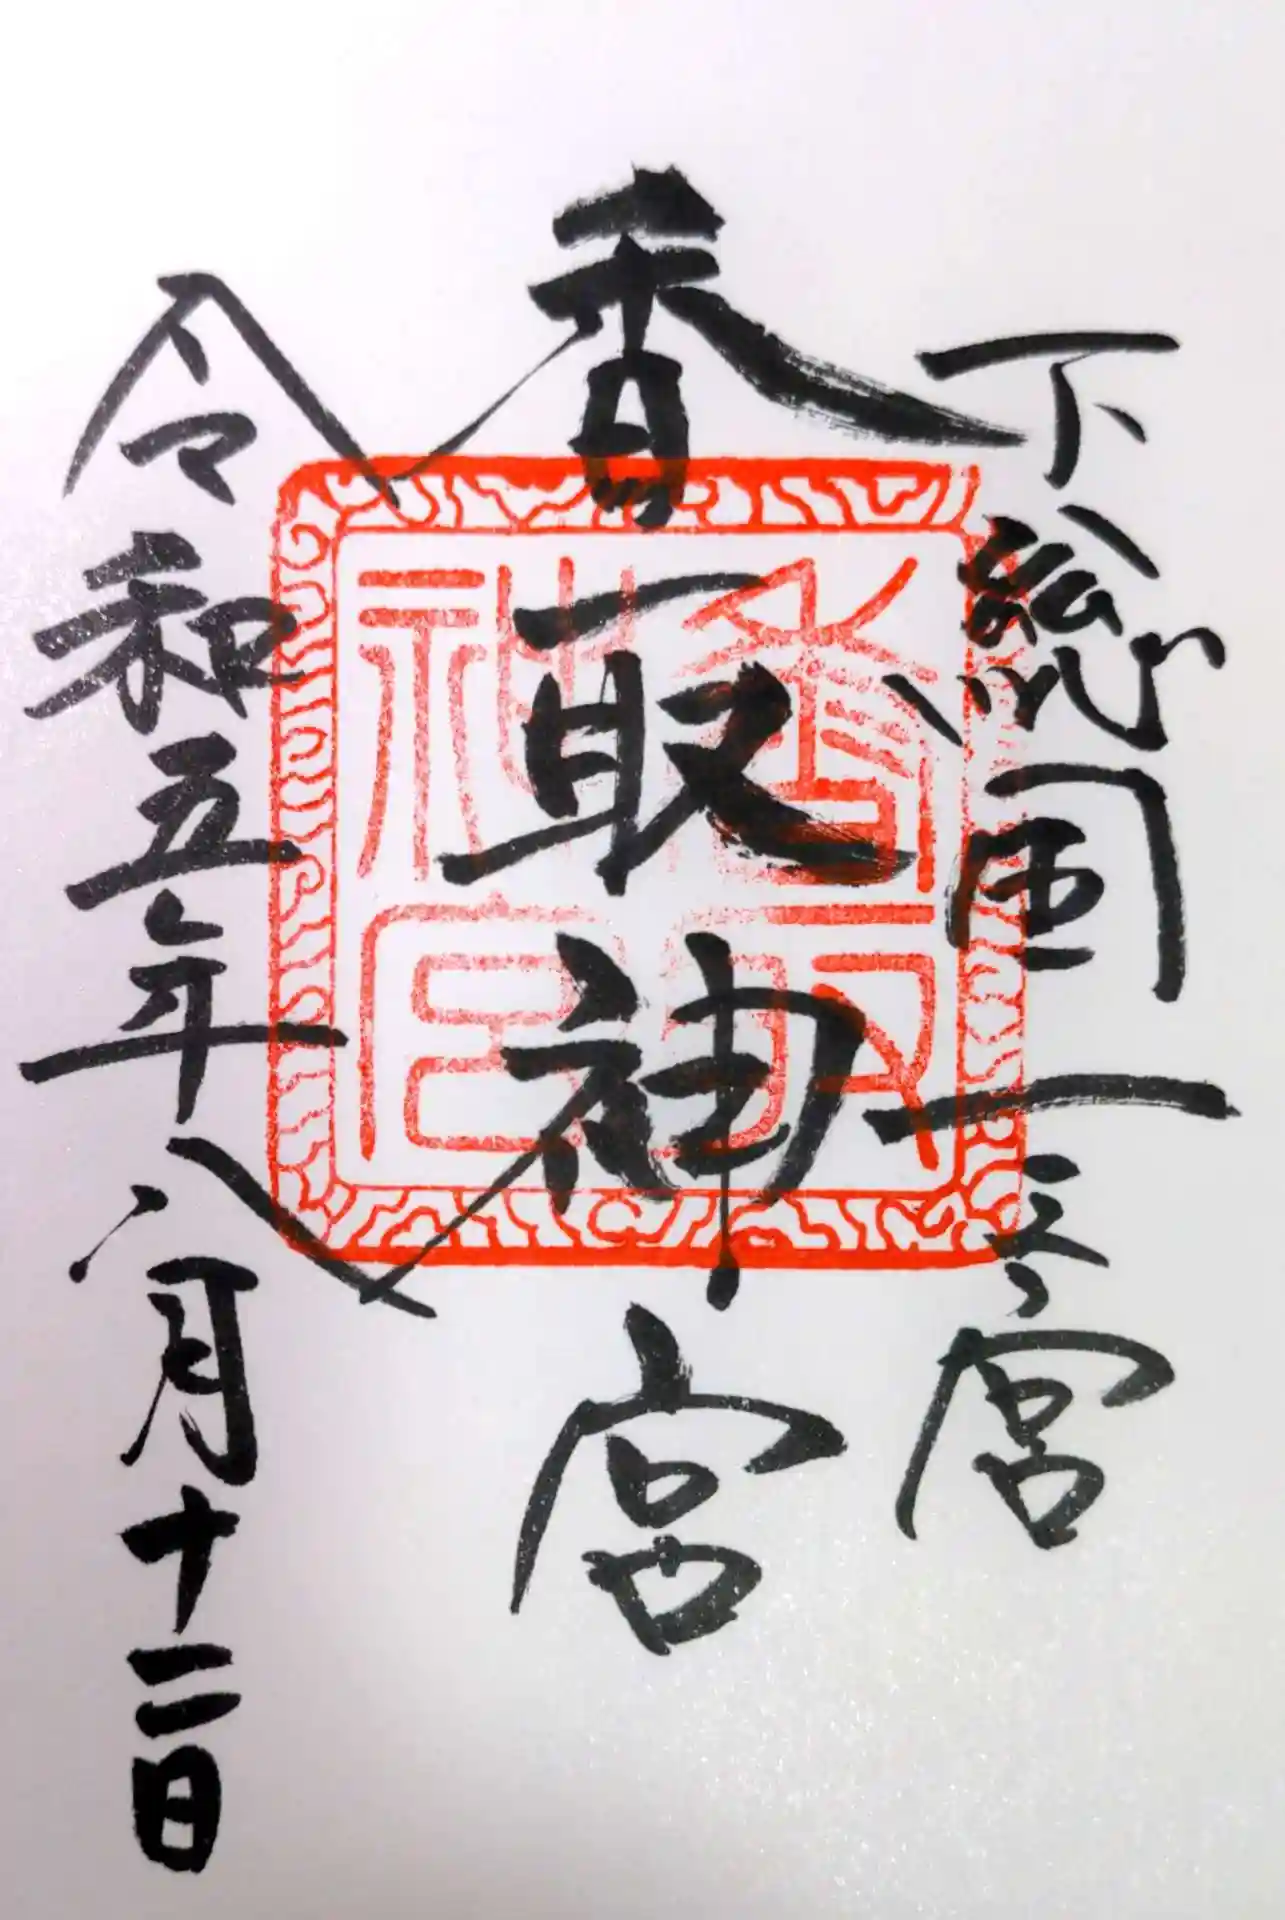 下総国一之宮
香取神宮
令和五年八月十二日
香取神宮